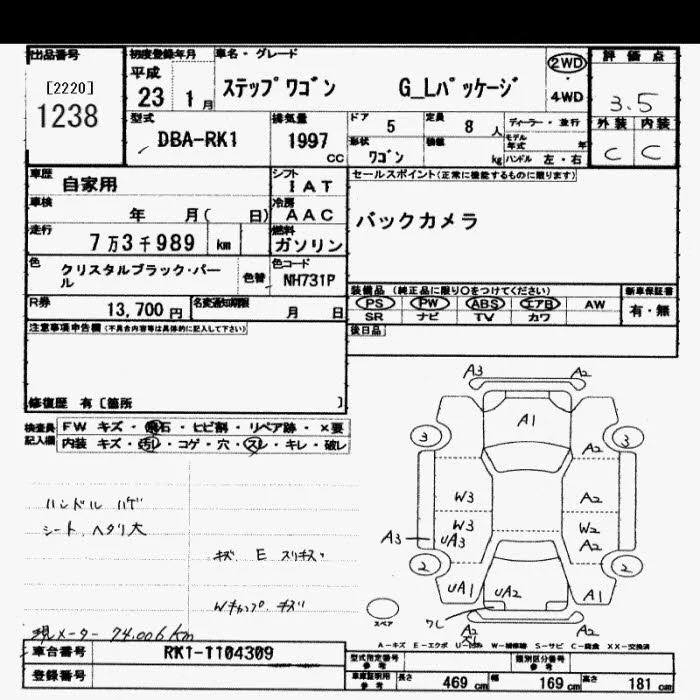 出品番号
[2220]
1238
初度登録年月
平成
23 1 月
車名・グレード
ステップワゴン G_Lパッケージ
2WD
・
4WD
評価点
3.5
外装 内装
C C
型式
DBA-RK1
排気量
1997
CC
ドア 5
定員 8 人
形状
ワゴン
積載
kg
ディーラー・並行
モデル
年式 年
ハンドル 左・右
車歴
自家用
シフト
IAT
車検
年 月( 日)
冷房
AAC
走行
7万3千989 km
燃料
ガソリン
色
クリスタルブラック・パール
色替
色コード
NH731P
R券
13,700 円
名変通知期限
月 日
セールスポイント(正常に機能するものに限ります)
バックカメラ
装備品 (純正品に限り○をつけてください)
PS PW ABS エアB AW
SR ナビ TV カワ
新車保証書
有・無
後日品
注意事項申告欄(不具合内容等は具体的に記入して下さい)
修復歴 有 [箇所 ]
検査員
記入欄
FW キズ・飛石・ヒビ割・リペア跡・×要
内装 キズ・汚レ・コゲ・穴・スレ・キレ・破レ
ハンドル ハゲ
シート ヘタリ大
キズ E スリキズ
Wキャップ キズ
現メーター 74.006km
A3 A2
A1
3 3
A2
W3 A2
W3 W2
A3 UA3 A2
2 2
UA1 UA2 A1
ワレ
スペア
A2 A2
X1
A-キズ E-エクボ U-凹み W-補修跡 S-サビ C-腐食 XX-交換済
車台番号 RK1-1104309
登録番号
型式指定番号
参考
類別区分番号
参考
車庫証明用
参考
長さ 469 cm 幅 169 cm 高さ 181 cm